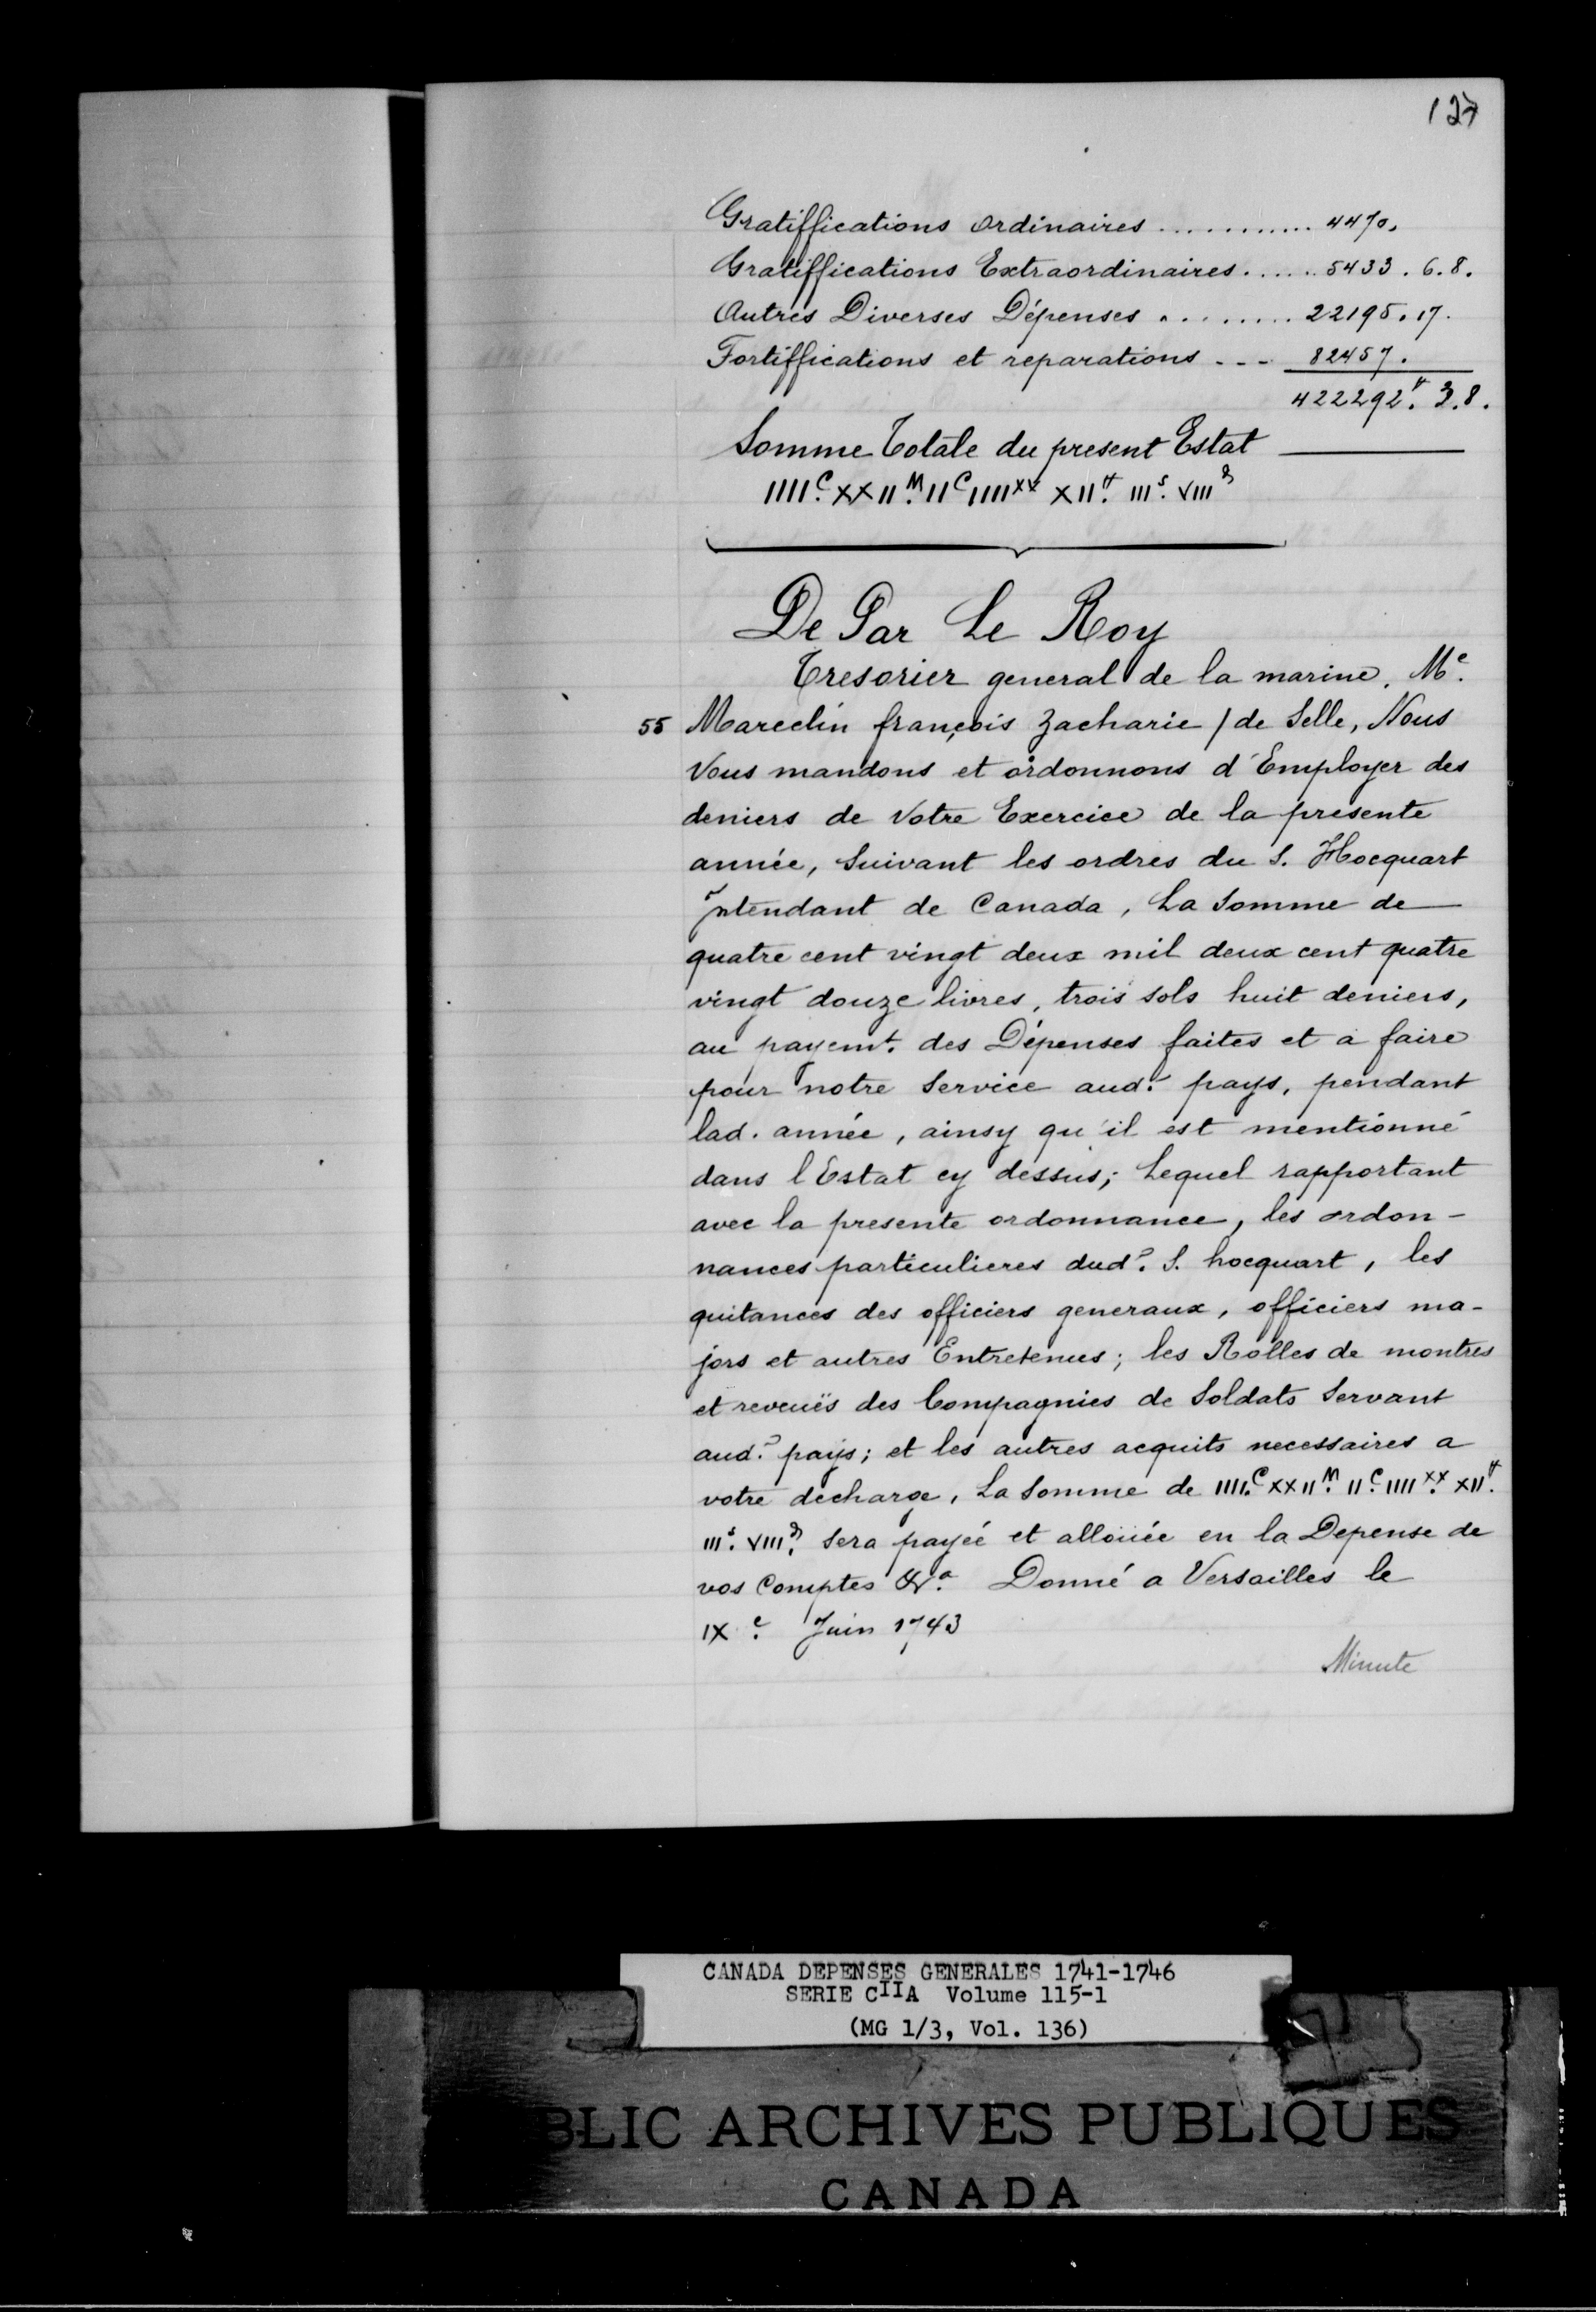 127
Gratiffications ordinaires ............ 4470.
Gratiffications Extraordinaires ...... 5433 . 6 . 8 .
Autres Diverses Dépenses ......... 22195 . 17 .
Fortiffications et reparations - - - 82457 .
422292ᵗᵗ. 3. 8.
Somme Totale du present Estat
IIIIᶜ. XXIIᴹ. IIᶜ IIIIˣˣ XIIᵗᵗ. IIIˢ. VIIIᵈ
De Par Le Roy
Tresorier general de la marine. Mᵉ.
55 Mareclin françois Zacharie / de Selle, Nous
Vous mandons et ordonnons d'Employer des
deniers de votre Exercice de la presente
année, Suivant les ordres du S. Hocquart
Intendant de Canada, La Somme de
quatre cent vingt deux mil deux cent quatre
vingt douze livres, trois sols huit deniers,
au payemᵗ. des Dépenses faites et a faire
pour notre Service audᵗ. pays, pendant
lad. année, ainsy qu'il est mentionné
dans l Estat cy dessus; Lequel rapportant
avec la presente ordonnance, les ordon-
nances particulieres dudᵗ. S. hocquart, les
quitances des officiers generaux, officiers ma-
jors et autres Entretenus; les Rolles de montres
et reveuës des Compagnies de Soldats Servant
audᵗ. pays; et les autres acquits necessaires a
votre decharge, La Somme de IIIIᶜ. XXIIᴹ. IIᶜ. IIIIˣˣ. XIIᵗᵗ.
IIIˢ. VIIIᵈ. Sera payée et alloüée en la Depense de
vos Comptes &ᵃ. Donné a Versailles le
IXᵉ. Juin 1743
Minute
CANADA DEPENSES GENERALES 1741-1746
SERIE CᴵᴵA Volume 115-1
(MG 1/3, Vol. 136)
BLIC ARCHIVES PUBLIQUES
CANADA